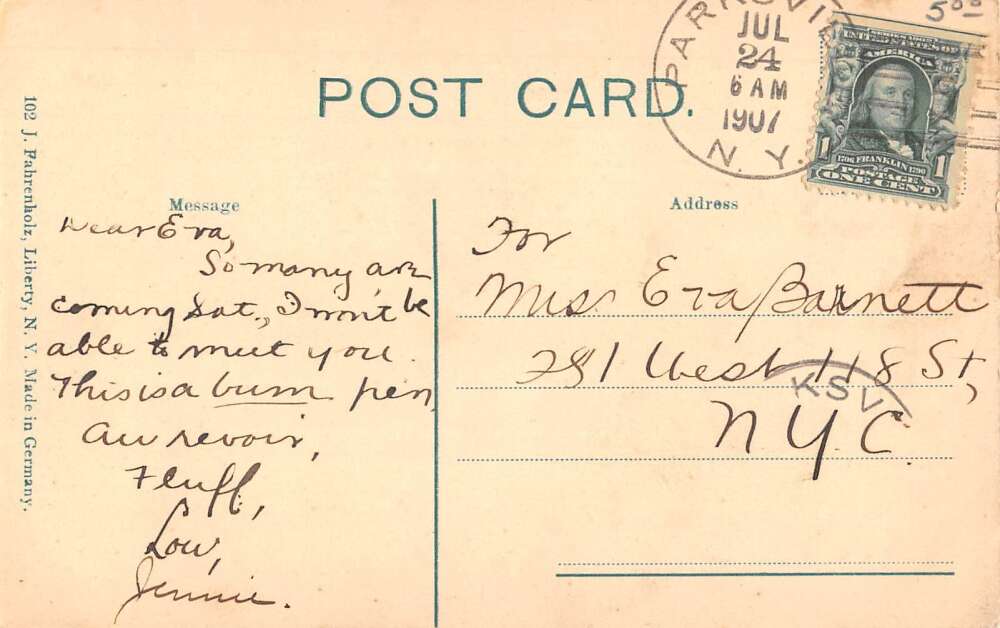 5⁰⁰
PARKSVILLE
JUL
24
6 AM
1907
N. Y.
UNITED STATES OF
AMERICA
1 1
1706 FRANKLIN 1790
POSTAGE
ONE CENT
POST CARD.
102 J. Fahrenholz, Liberty, N. Y. Made in Germany.
Message
Dear Eva,
So many are
coming Sat., I won't be
able to meet you.
This is a bum pen,
Au revoir,
Fluff,
Low,
Jennie.
Address
For
Miss Eva Barnett
281 West 118 St,
KSV
N.Y.C.